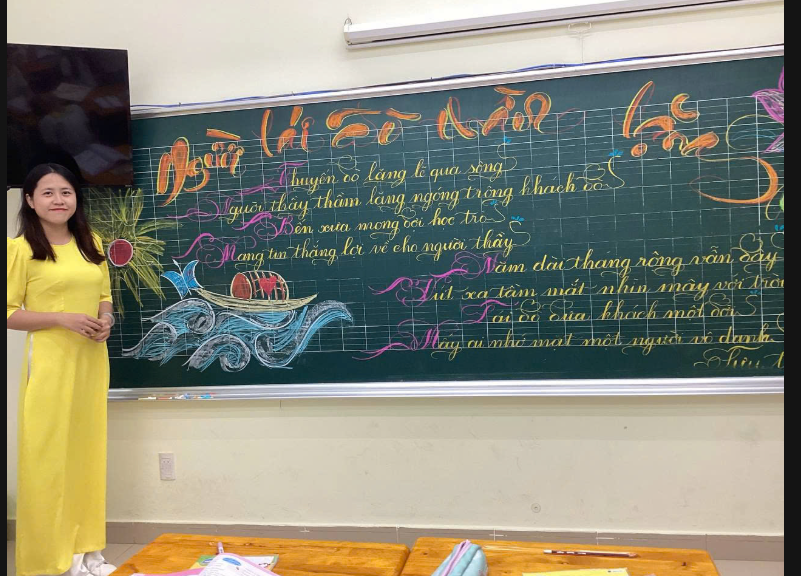 Người lái đò thầm lặng
Thuyền cô lặng lẽ qua sông
Người thầy thầm lặng ngóng trông khách đò
Bến xưa mong đợi học trò
Mang tin thắng lợi về cho người thầy
Năm dài tháng rộng vẫn đây
Hút xa tầm mắt nhìn mây với
Lái đò đưa khách một đời
Mấy ai nhớ mặt một người vô danh